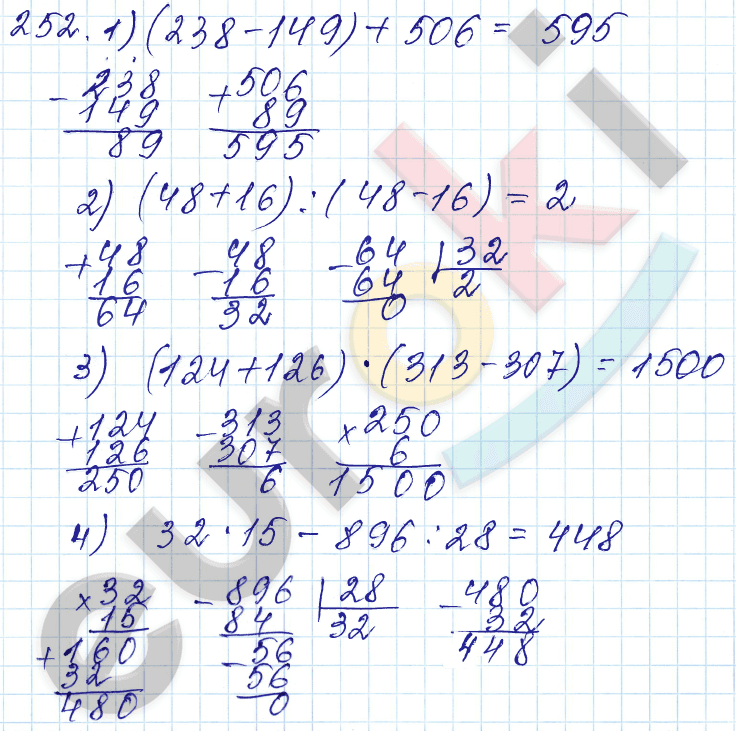 252. 1) (238 - 149) + 506 = 595
- 238 + 506
149 89
89 595
2) (48 + 16) : (48 - 16) = 2
+ 48 - 48 - 64 32
16 16 64 2
64 32 0
3) (124 + 126) · (313 - 307) = 1500
+ 124 - 313 × 250
126 307 6
250 6 1500
4) 32 · 15 - 896 : 28 = 448
× 32 - 896 28 - 480
15 84 32 32
+ 160 - 56 448
32 56
480 0
euroki